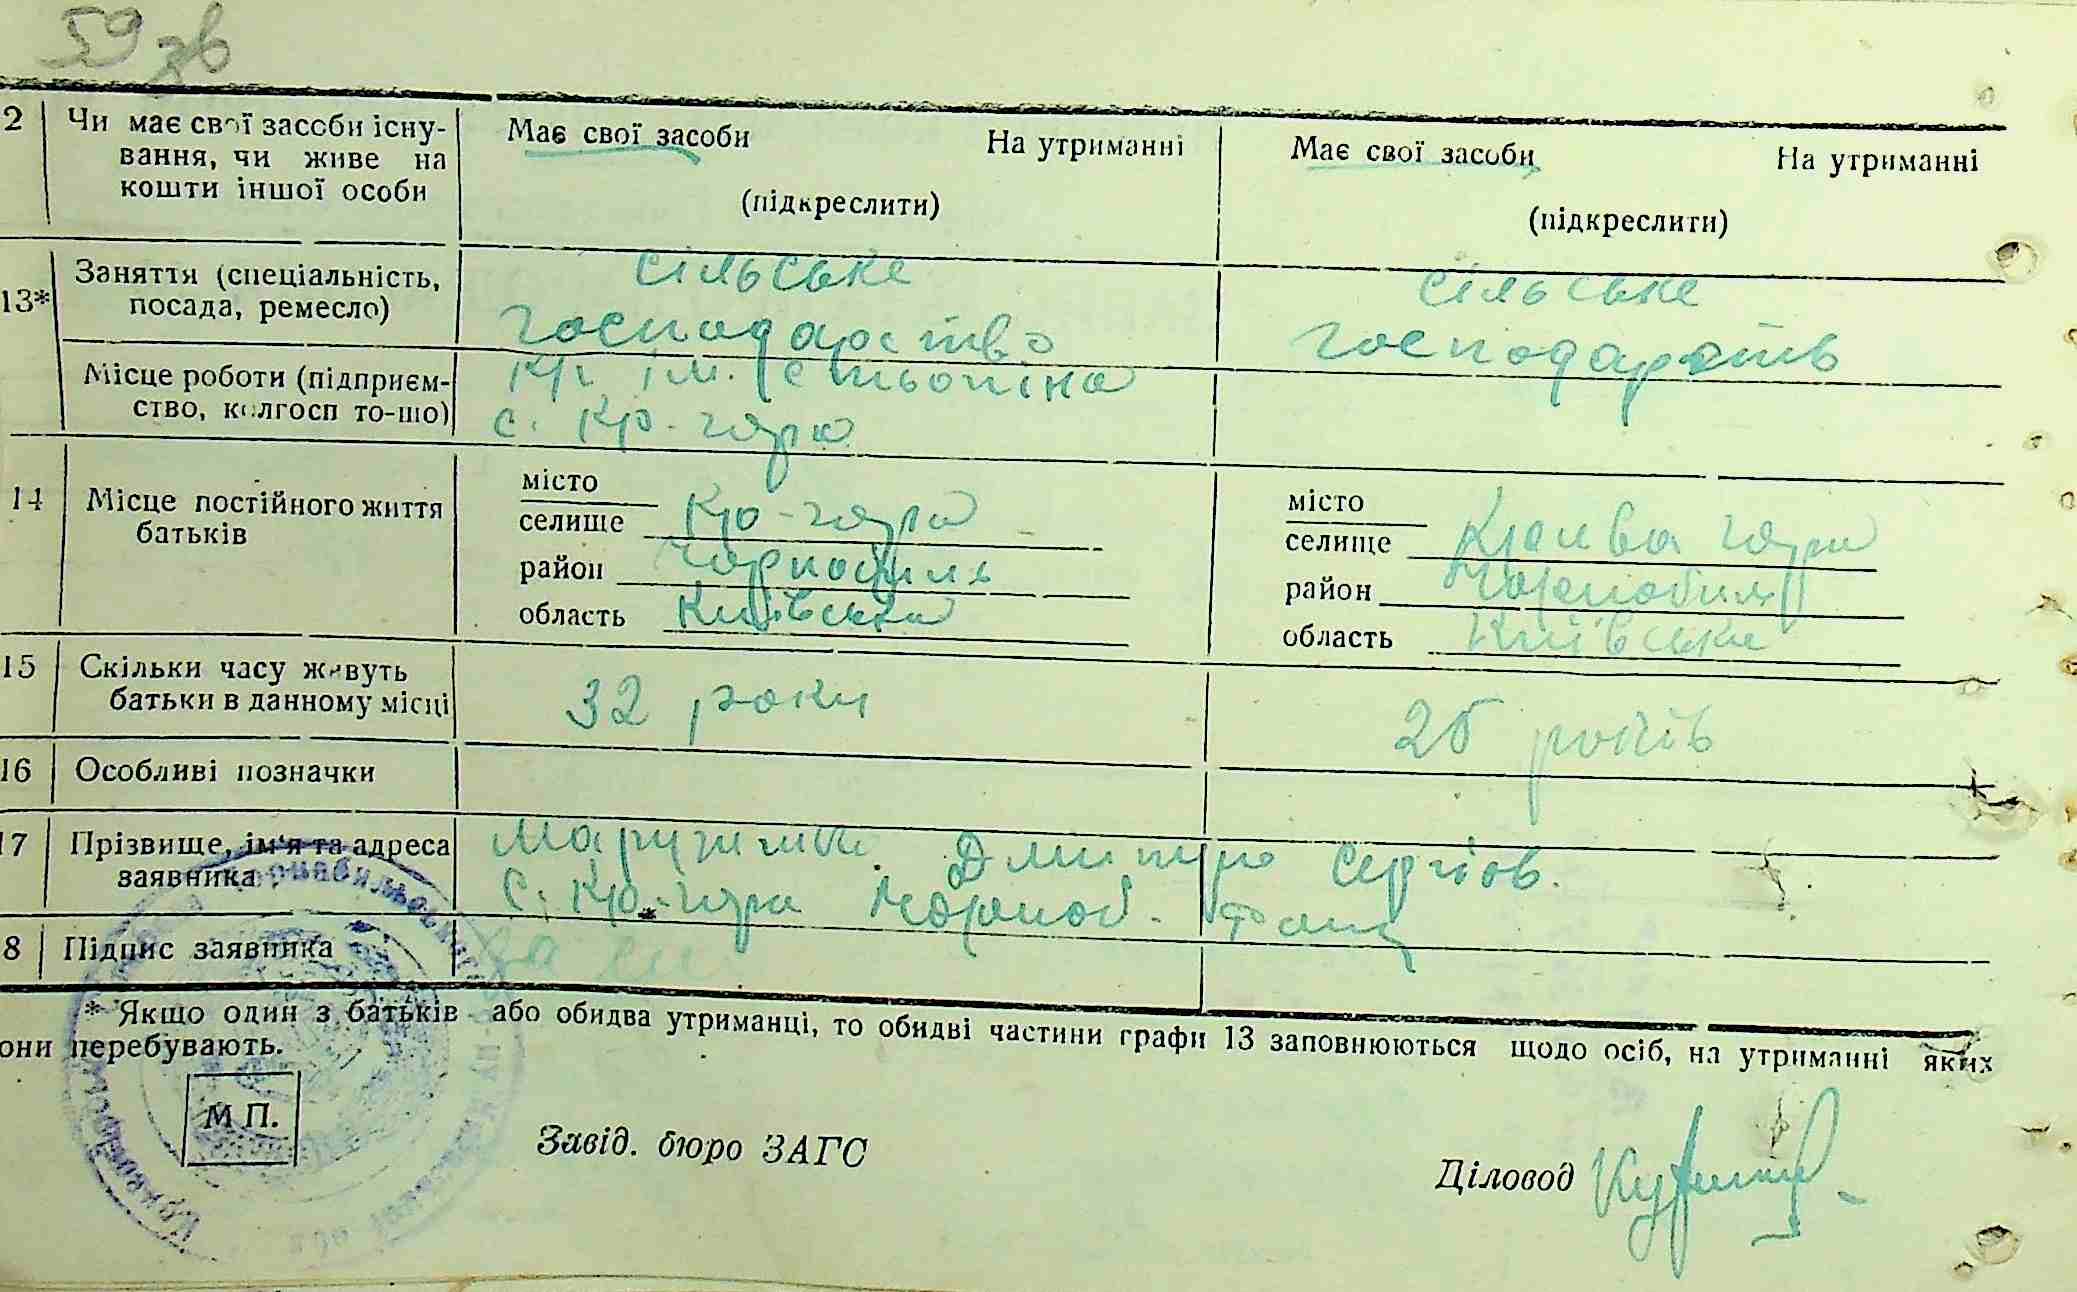 59 зв
2 Чи має свої засоби існу-
вання, чи живе на
кошти іншої особи
Має свої засоби На утриманні
(підкреслити)
Має свої засоби На утриманні
(підкреслити)
13* Заняття (спеціальність,
посада, ремесло)
сільське
господарство
сільське
господарств
Місце роботи (підприєм-
ство, колгосп то-що)
ім.
с. Кр-гора
14 Місце постійного життя
батьків
місто
селище Кр-гора
район Чорнобиль
область Київська
місто
селище гора
район Чорнобиль
область Київська
15 Скільки часу живуть
батьки в данному місці
32 роки
25 років
16 Особливі позначки
17 Прізвище, ім'я та адреса
заявника
Дмитро Сергіов.
с. Кр-гора Чорноб.
8 Підпис заявника
* Якщо один з батьків або обидва утриманці, то обидві частини графи 13 заповнюються щодо осіб, на утриманні яких
они перебувають.
М П.
Завід. бюро ЗАГС
Діловод